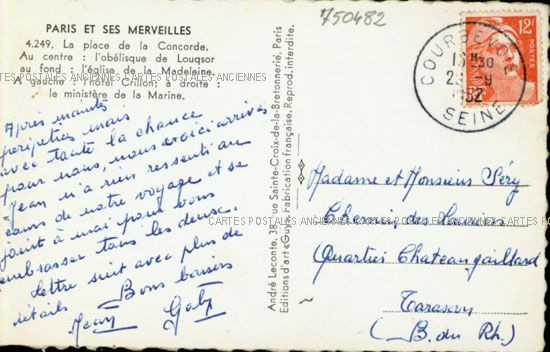 PARIS ET SES MERVEILLES
4.249. La place de la Concorde.
Au centre : l'obélisque de Louqsor
au fond : l'église de la Madeleine.
A gauche : l'hôtel Crillon; à droite :
le ministère de la Marine.
CARTES POSTALES ANCIENNES CARTES POSTALES ANCIENNES
750482
12F
COURBEVOIE
23 - 9
1952
SEINE
Après mainte
péripéties mais
avec toute la chance
pour nous, nous voici arrivés
Jean n'a rien ressenti au
cours de notre voyage et se
joint à moi pour vous
embrasser tous les deux.
Lettre suit avec plus de
détails Bons baisers
Jean Gaby
André Leconte, 38, rue Sainte-Croix-de-la-Bretonnerie, Paris
Editions d'art «Guy» Fabrication française. Reprod. interdite.
Madame et Monsieur Péry
Chemin des
CARTES POSTALES ANCIENNES CARTES POSTALES ANCIENNES
Quartier Chateaugaillard
Tarascon
(B. du Rh.)